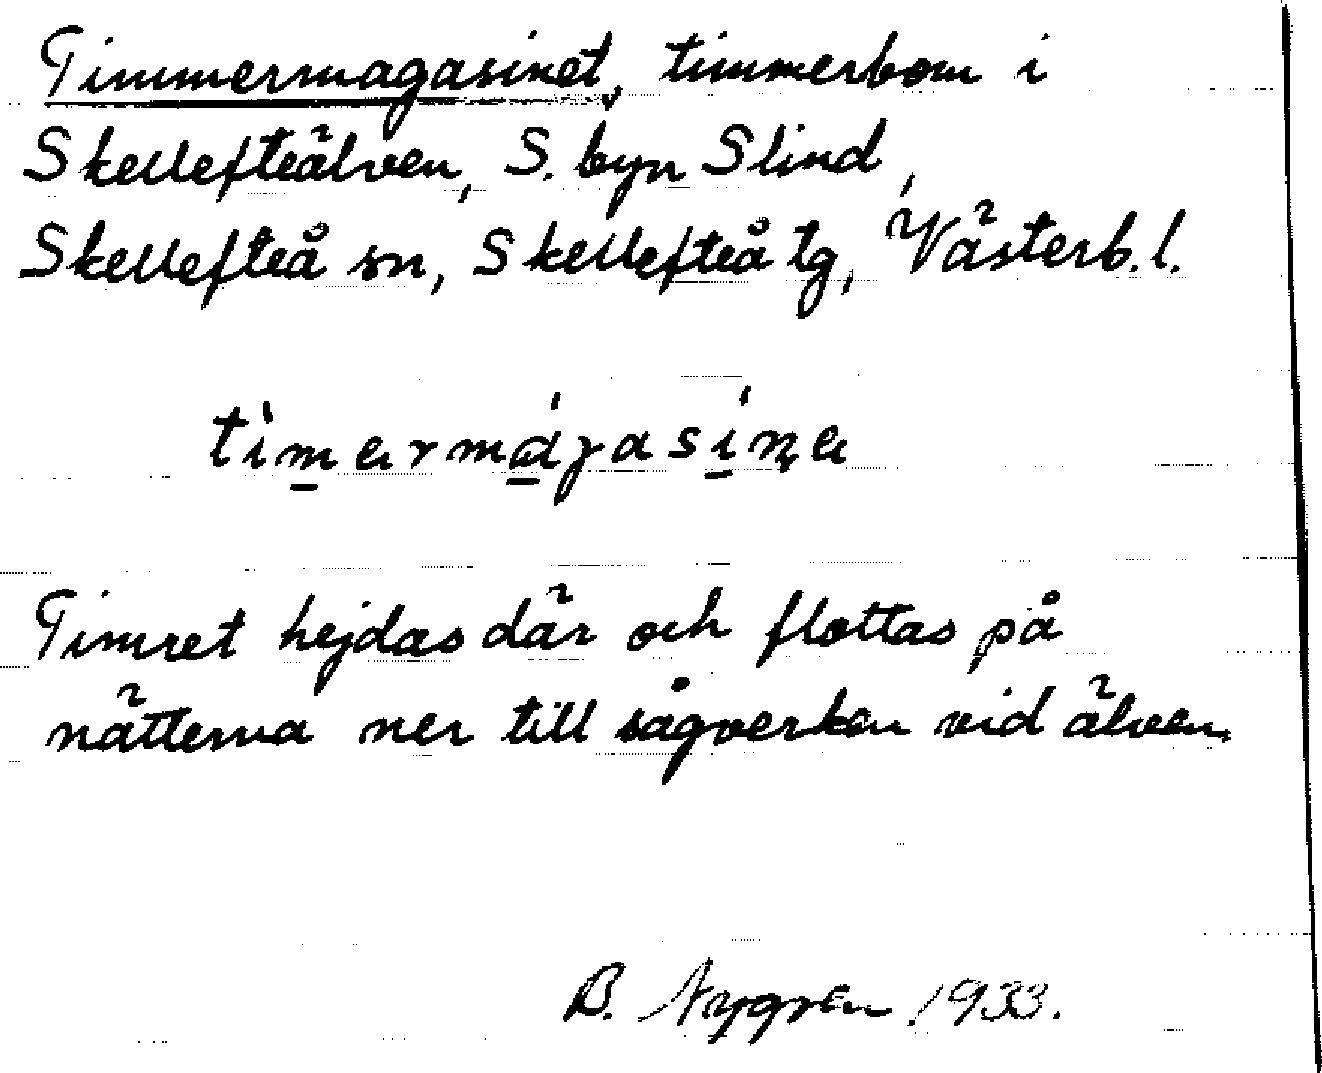 Timmermagasinet, timmerbom i
Skellefteälven, S. byn Slind,
Skellefteå sn, Skellefteå tg, Västerb. l.
Timret hejdas där och flottas på
nätterna ner till sågverken vid älven.
B. Nygren 1933.